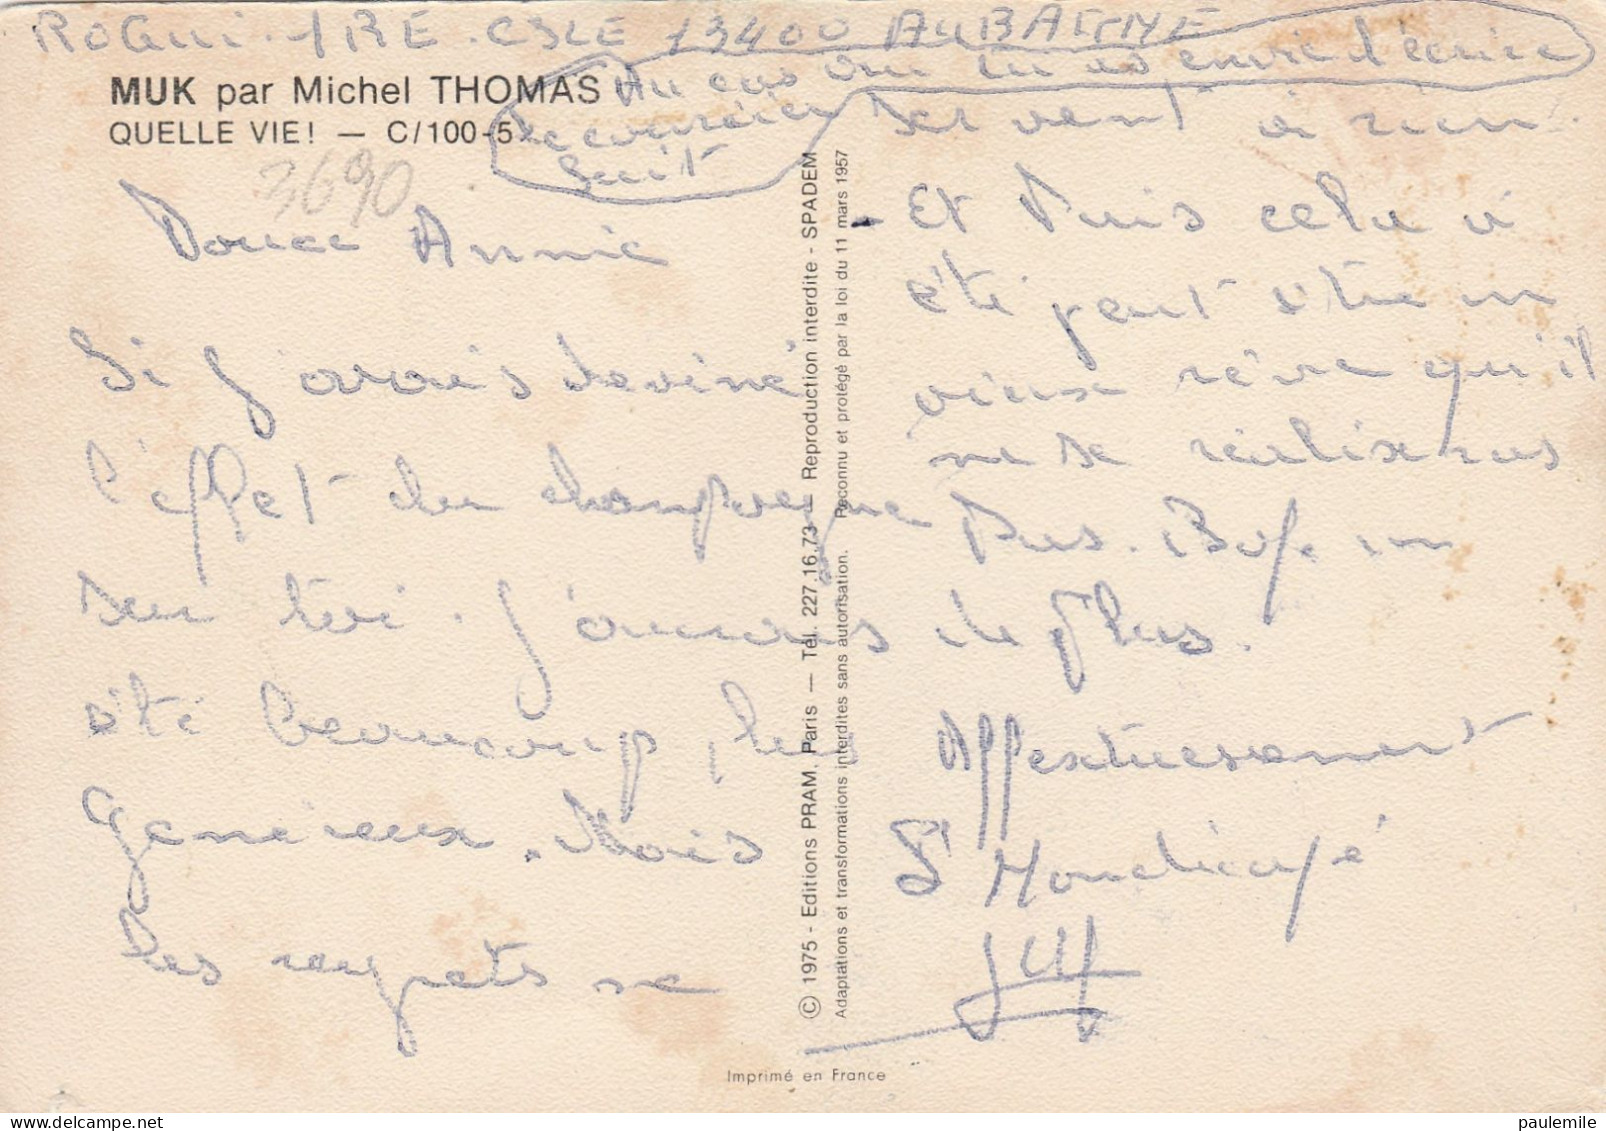 ROGUI. 1RE. CSLE 13400 AUBAGNE
Au cas ou tu as envie d'écrire
le courrier
suit
MUK par Michel THOMAS
QUELLE VIE! — C/100-5
3690
Douce Annie
Si j'avais deviné
l'effet du champagne
sur toi. J'aurais
été beaucoup plus
généreux. Mais
les regrets ne
servent à rien.
- Et Puis cela a
été peut être un
vieux rêve qu'il
ne se réalisera
Pas. Bof. un
de plus.
Affectueusement
imprimé en France
© 1975 - Editions PRAM. Paris — Tél. 227.16.73 — Reproduction interdite - SPADEM
Adaptations et transformations interdites sans autorisation. Reconnu et protégé par la loi du 11 mars 1957
paulemile